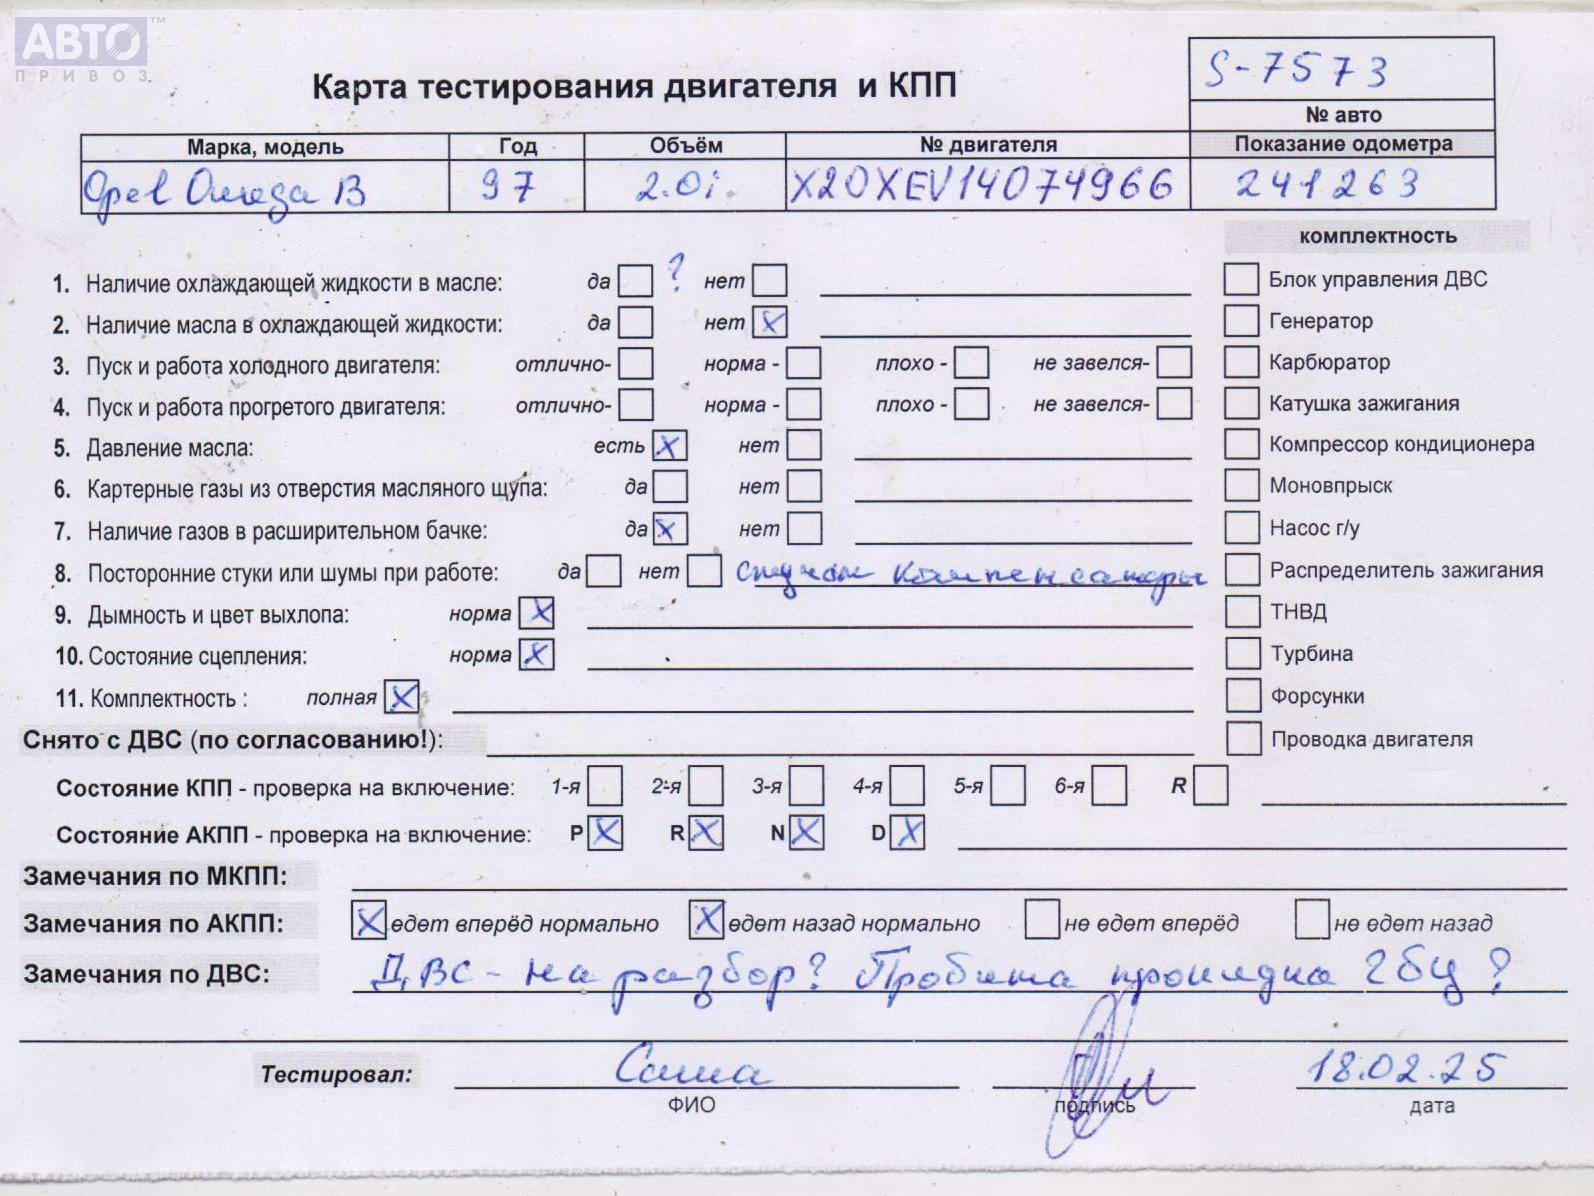 АВТО™
ПРИВОЗ
S-7573
Карта тестирования двигателя и КПП
№ авто
Марка, модель Год Объём № двигателя Показание одометра
Opel Омега B 97 2.0i. X20XEV14074966 241263
комплектность
1. Наличие охлаждающей жидкости в масле: да ? нет Блок управления ДВС
2. Наличие масла в охлаждающей жидкости: да нет X Генератор
3. Пуск и работа холодного двигателя: отлично- норма - плохо - не завелся- Карбюратор
4. Пуск и работа прогретого двигателя: отлично- норма - плохо - не завелся- Катушка зажигания
5. Давление масла: есть X нет Компрессор кондиционера
6. Картерные газы из отверстия масляного щупа: да нет Моновпрыск
7. Наличие газов в расширительном бачке: да X нет Насос г/у
8. Посторонние стуки или шумы при работе: да нет компенсаторы Распределитель зажигания
9. Дымность и цвет выхлопа: норма X ТНВД
10. Состояние сцепления: норма X Турбина
11. Комплектность : полная X Форсунки
Снято с ДВС (по согласованию!): Проводка двигателя
Состояние КПП - проверка на включение: 1-я 2-я 3-я 4-я 5-я 6-я R
Состояние АКПП - проверка на включение: P X R X N X D X
Замечания по МКПП:
Замечания по АКПП: X едет вперёд нормально X едет назад нормально не едет вперёд не едет назад
Замечания по ДВС: ДВС - на разбор? Пробита прокладка ГБЦ?
Тестировал: Саша 18.02.25
ФИО подпись дата